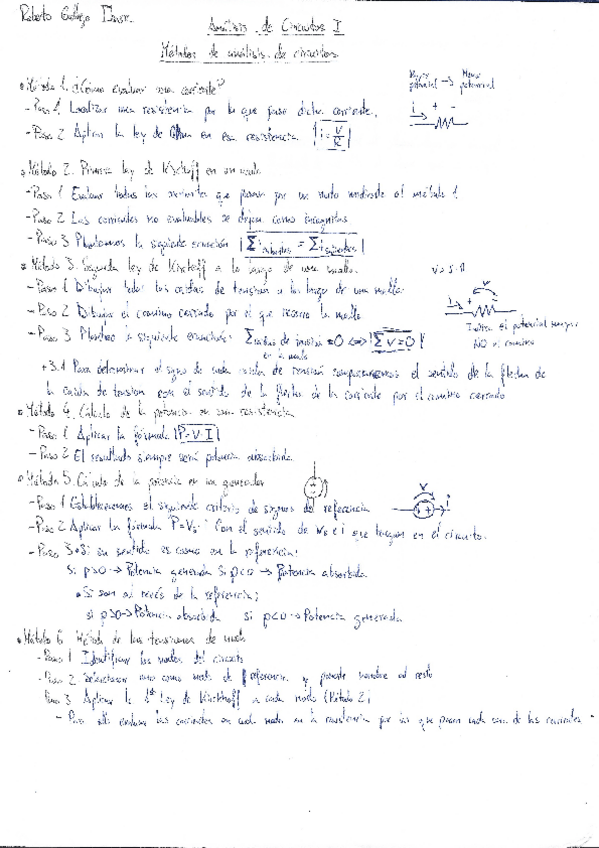 Roberto
Análisis de Circuitos I
Métodos de análisis de circuitos
• Método 1. ¿Cómo evaluar una corriente?
Mayor potencial → Menor potencial
- Paso 1. Localizar una resistencia por la que pase dicha corriente.
i + -
- Paso 2 Aplicar la ley de Ohm en esa resistencia. |i = V/R|
• Método 2. Primera ley de Kirchoff en un nudo
- Paso 1 Evaluar todas las corrientes que pasan por un nudo mediante el método 1.
- Paso 2 Las corrientes no evaluables se dejan como incógnitas
- Paso 3 Planteamos la siguiente ecuación |Σi entrantes = Σi salientes|
• Método 3. Segunda ley de Kirchoff a lo largo de una malla.
- Paso 1 Dibujar todas las caídas de tensión a lo largo de una malla.
V
i + -
- Paso 2 Dibujar el camino cerrado por el que recorro la malla
Indica el potencial mayor
NO el camino
- Paso 3 Planteo la siguiente ecuación: Σ caídas de tensión = 0 ⟺ |Σ V = 0|
en la malla
• 3.1 Para determinar el signo de cada caída de tensión comparamos el sentido de la flecha de
la caída de tension con el sentido de la flecha de la corriente por el camino cerrado
• Método 4. Cálculo de la potencia en una resistencia
- Paso 1 Aplicar la fórmula |P = V·I|
- Paso 2 El resultado siempre será potencia absorbida
• Método 5. Cálculo de la potencia en un generador
- Paso 1 Establecemos el siguiente criterio de signos de referencia
V
i
- Paso 2 Aplicar la fórmula P = Vs·i Con el sentido de Vs e i que tengan en el circuito.
- Paso 3 • Si su sentido es como en la referencia:
Si p>0 → Potencia generada Si p<0 → Potencia absorbida
• Si son al revés de la referencia;
si p>0 → Potencia absorbida si p<0 → Potencia generada
• Método 6 Método de las tensiones de nudo
- Paso 1 Identificar los nudos del circuito
- Paso 2 Seleccionar uno como nudo de referencia y ponerle nombre al resto
Paso 3 Aplicar la 1ª Ley de Kirchhoff a cada nudo (Método 2)
- Para ello evaluar las corrientes en cada nudo en la resistencia por las que pasen cada una de las corrientes.